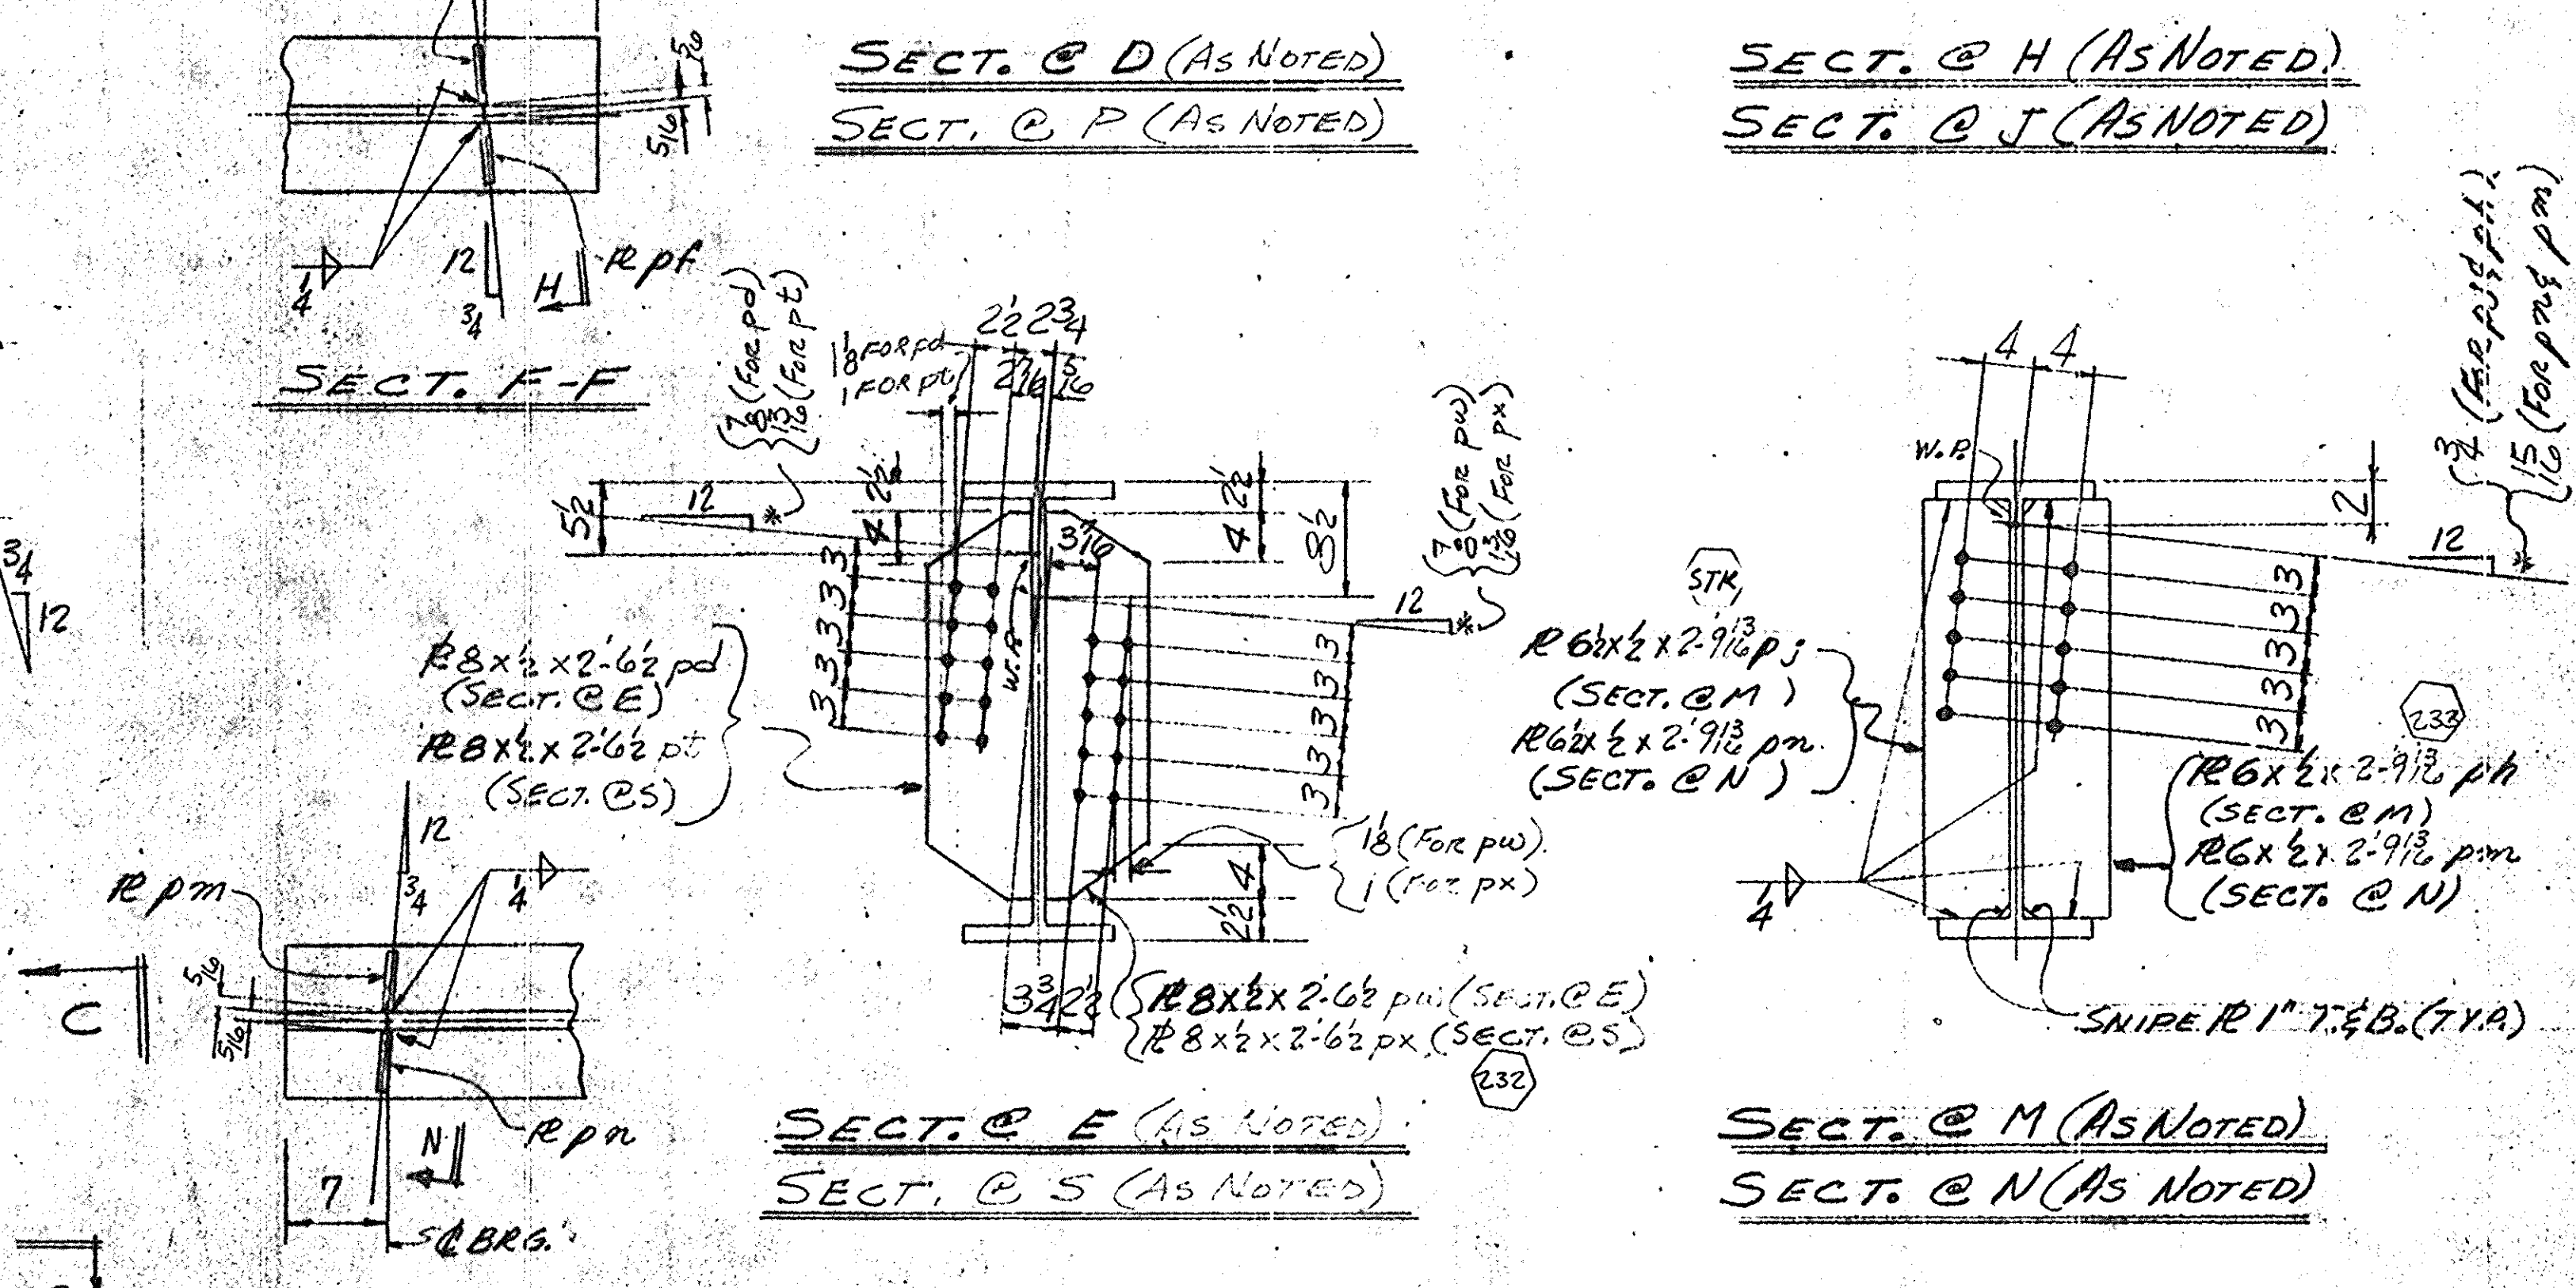 SECT. @ D (AS NOTED)
SECT. @ P (AS NOTED)
SECT. @ H (AS NOTED)
SECT. @ J (AS NOTED)
5/16
5/16
1/4
12
3/4
H
PL pf
SECT. F-F
3/4
12
7/8 (FOR pd)
13/16 (FOR pt)
1 1/8 FOR pd
1 FOR pt
2 1/2 2 3/4
2 7/16 5/16
5 1/2
12
*
2 1/2
4
3 3 3 3
W.P.
3 7/16
2 1/2
4
8 1/2
7/8 (FOR pw)
13/16 (FOR px)
12
*
3 3 3 3 3
PL 8 x 1/2 x 2'-6 1/2 pd
(SECT. @ E)
PL 8 x 1/2 x 2'-6 1/2 pt
(SECT. @ S)
1 1/8 (FOR pw)
1 (FOR px)
4
2 1/2
3 3/4 2 1/2
PL 8 x 1/2 x 2'-6 1/2 pw (SECT. @ E)
PL 8 x 1/2 x 2'-6 1/2 px (SECT. @ S)
232
SECT. @ E (AS NOTED)
SECT. @ S (AS NOTED)
4 4
W.P.
3/4 (FOR pj & ph)
15/16 (FOR pn & pm)
2
12
*
3 3 3 3 3
STK
PL 6 1/2 x 1/2 x 2'-9 13/16 pj
(SECT. @ M)
PL 6 1/2 x 1/2 x 2'-9 13/16 pn
(SECT. @ N)
233
PL 6 x 1/2 x 2'-9 13/16 ph
(SECT. @ M)
PL 6 x 1/2 x 2'-9 13/16 pm
(SECT. @ N)
1/4
SNIPE PL 1" T. & B. (TYP.)
SECT. @ M (AS NOTED)
SECT. @ N (AS NOTED)
12
3/4
1/4
PL pm
C
5/16
5/16
PL pn
N
7
S ℄ BRG.